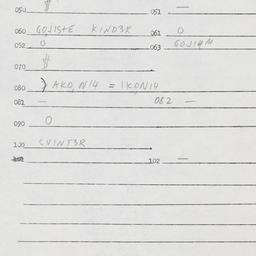 050 $ 051 —
060 GOJISTE KIND3R 061 0
052 0 063 GOJIHM
070 $
080 ) AKO,NI4 = IKONI4
081 — 082 —
090 0
110 CVINT3R
102 —